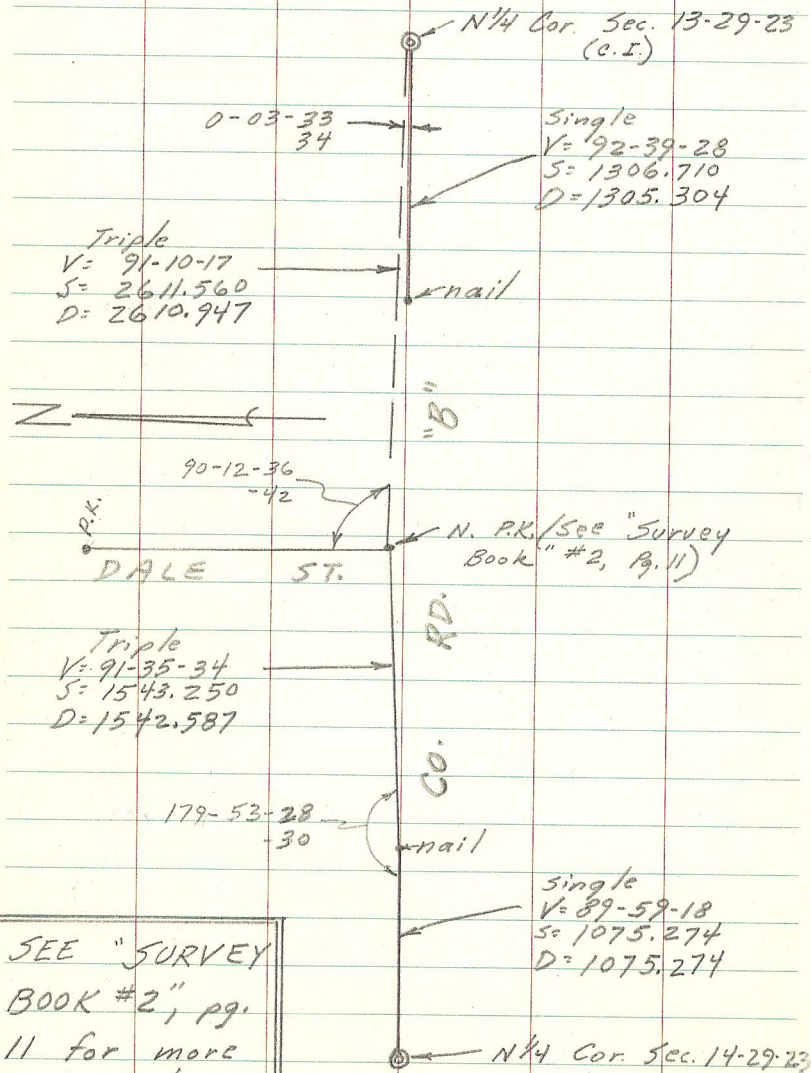 N 1/4 Cor. Sec. 13-29-23
(C.I.)
0-03-33
34
Single
V= 92-39-28
S= 1306.710
D= 1305.304
Triple
V= 91-10-17
S= 2611.560
D= 2610.947
nail
N
"B"
90-12-36
-42
P.K.
N. P.K. (See "Survey
Book" #2, Pg. 11)
DALE ST.
RD.
Triple
V= 91-35-34
S= 1543.250
D= 1542.587
CO.
179-53-28
-30
nail
Single
V= 89-59-18
S= 1075.274
D= 1075.274
SEE "SURVEY
BOOK #2", pg.
11 for more
N 1/4 Cor. Sec. 14-29-23